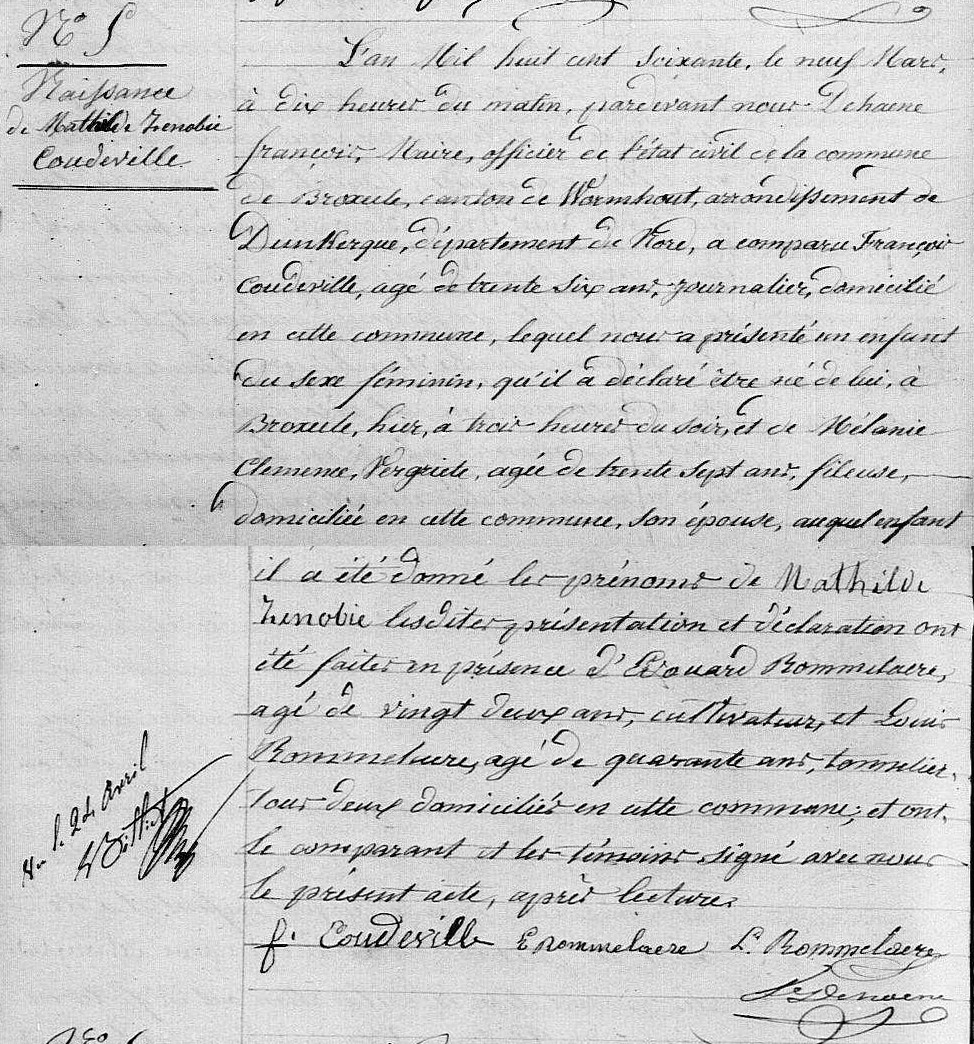 N° 5
Naissance
de Mathilde Zenobie
Coudeville
L'an Mil huit cent soixante, le neuf Mars,
à dix heures du matin, pardevant nous Dehaene
françois, Maire, officier de l'état civil de la commune
de Broxeele, canton de Wormhout, arrondissement de
Dunkerque, département du Nord, a comparu François
Coudeville, agé de trente six ans, journalier, domicilié
en cette commune, lequel nous a présenté un enfant
du sexe féminin, qu'il a déclaré être né de lui, à
Broxeele, hier, à trois heures du soir, et de Mélanie
Clemence, Vergriete, agée de trente sept ans, fileuse,
domiciliée en cette commune, son épouse, auquel enfant
il a été donné les prénoms de Mathilde
Zenobie lesdites présentation et déclaration ont
été faites en présence d'Edouard Rommelaere,
agé de vingt deux ans, cultivateur, et Louis
Rommelaere, agé de quarante ans, tonnelier,
tous deux domiciliés en cette commune; et ont
le comparant et les témoins signé avec nous
le présent acte, après lecture.
Vu le 24 Avril
f. Coudeville E Rommelaere L. Rommelaere
Dehaene